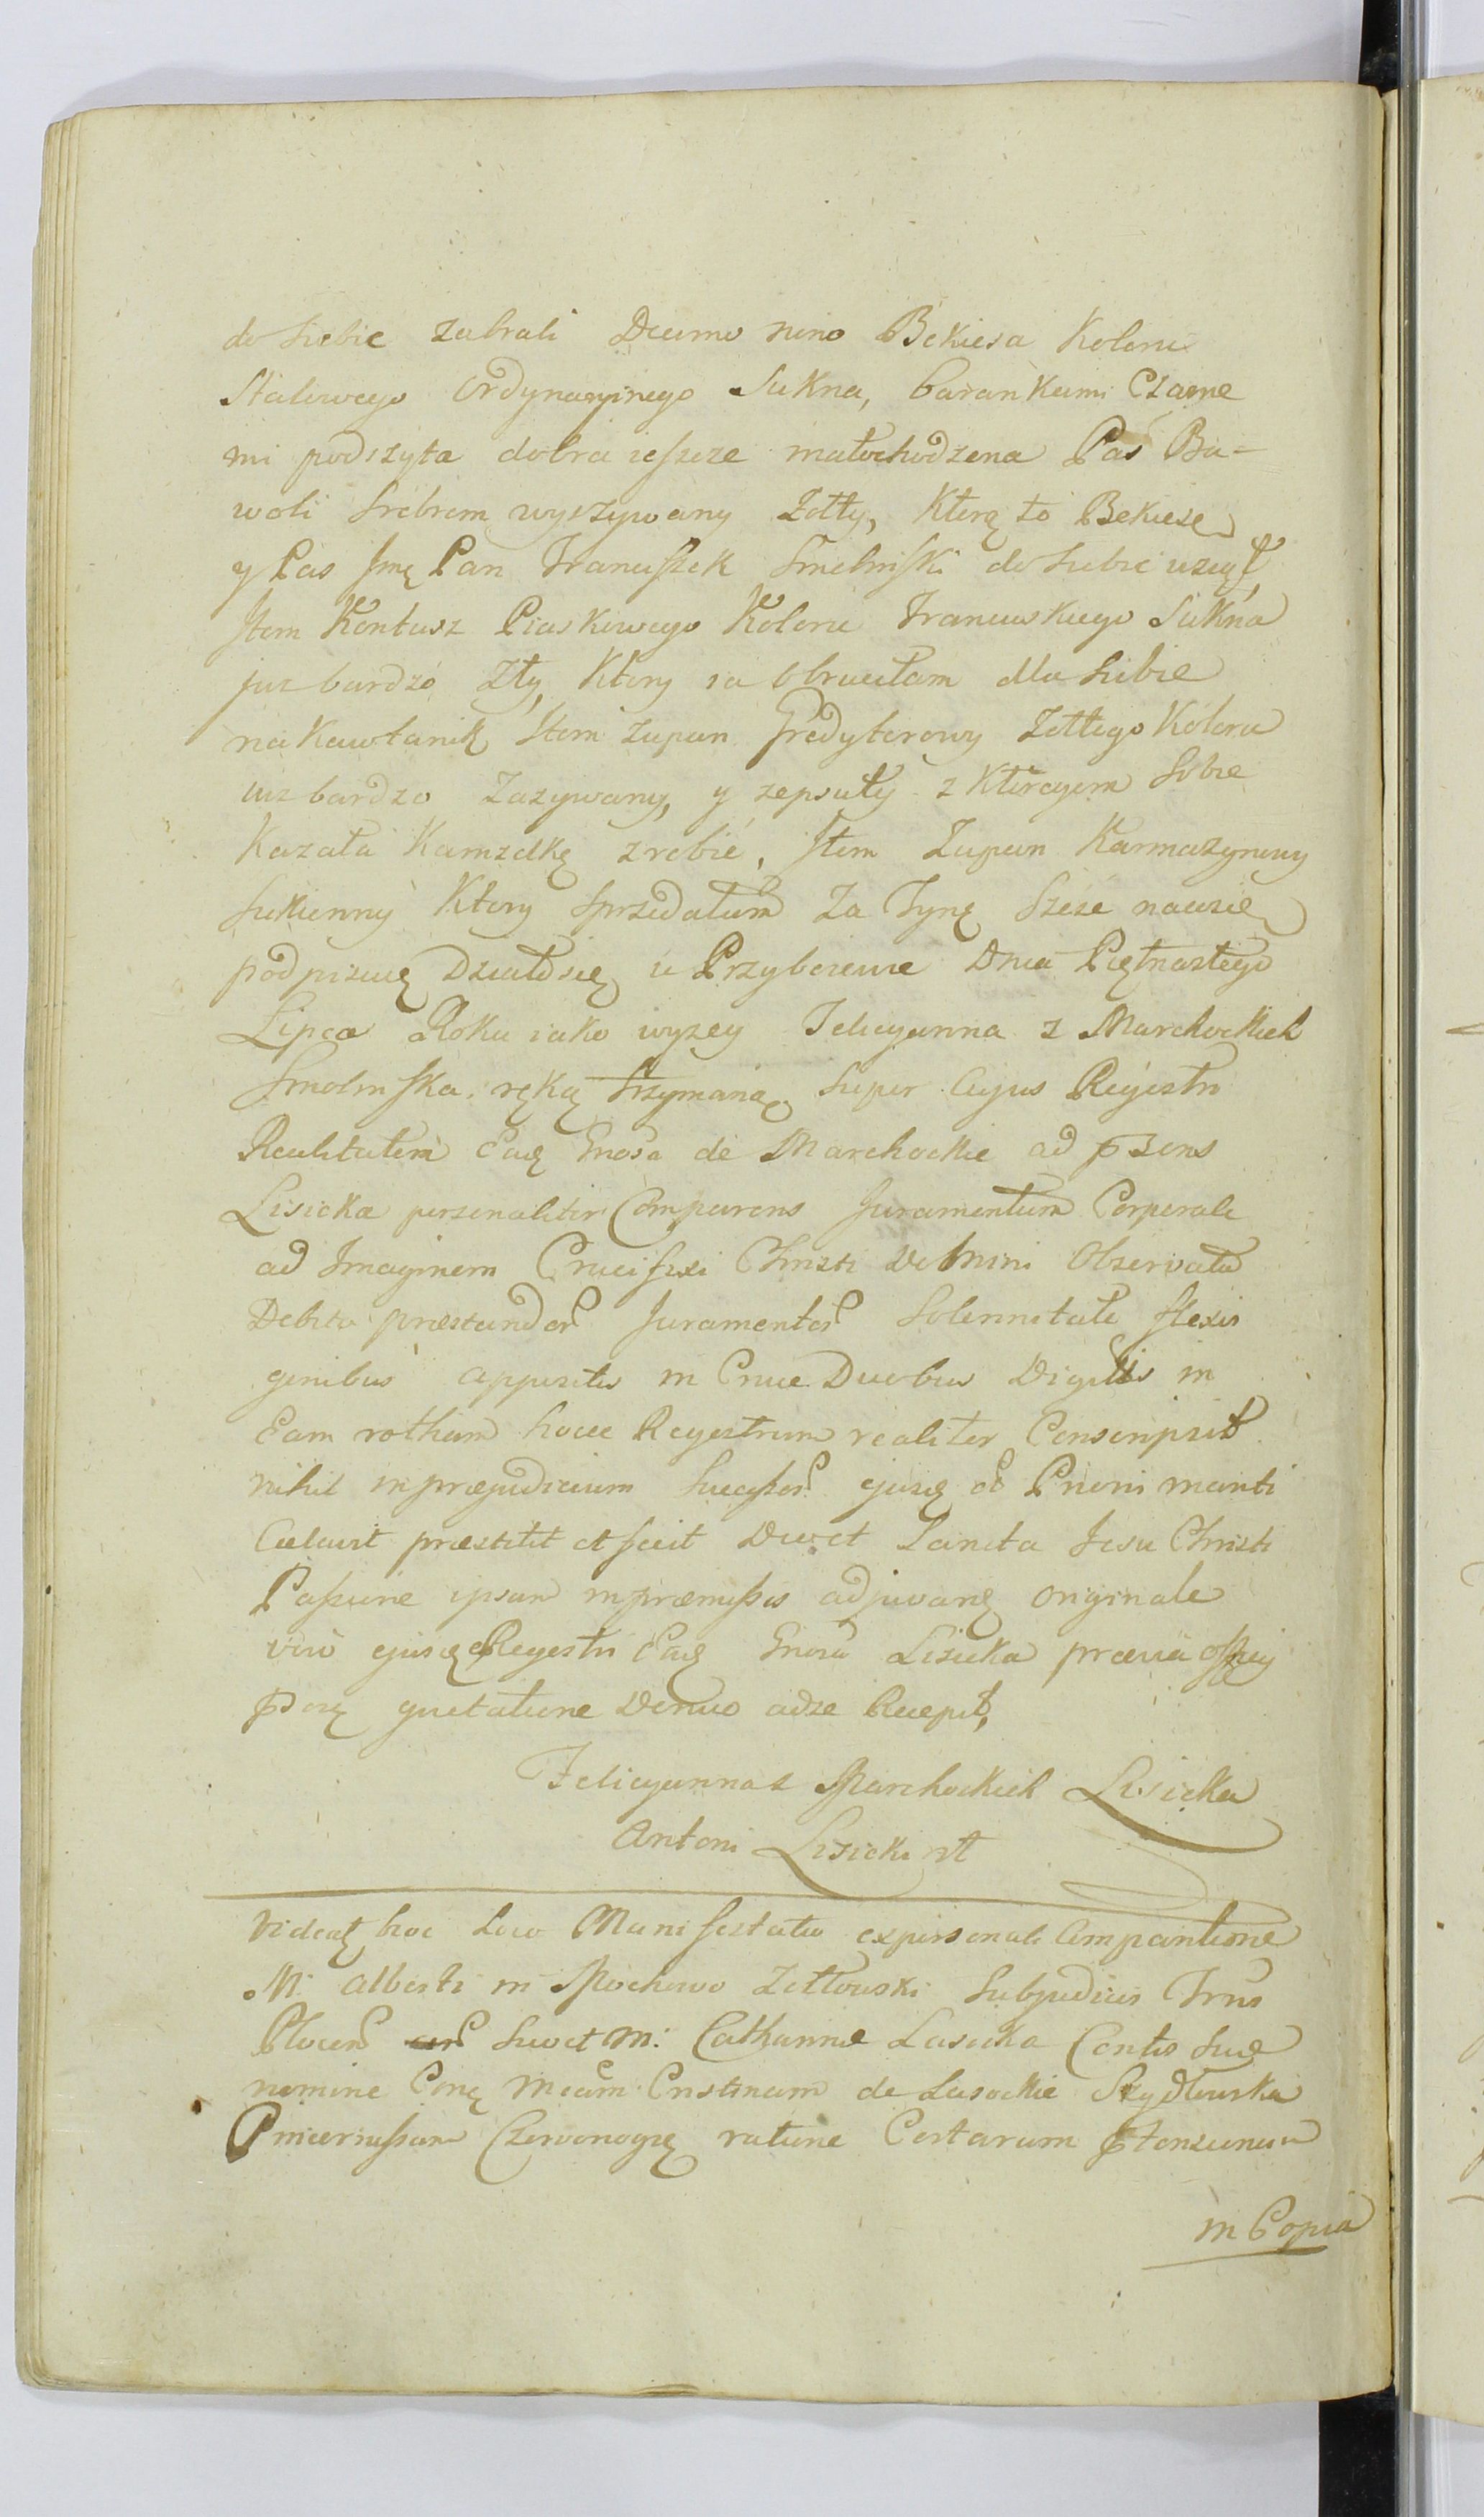 do siebie zabrali Decimo nono Bekiesa Koloru
Stalowego Ordynaryinego Sukna, barankami Czarne
mi podszyta dobra ieszcze małochodzona Pas Ba-
woli srebrem wyszywany Zołty, Ktorę to Bekieszę
y Pas Jmę Pan Franciszek Smolinski do siebie uzioł,
Item Kontusz Piaskowego Koloru Francuskiego Sukna
juz bardzo Zły, Ktory ia obruciłam dla siebie
na Kawtanik Item Zupan Gredyturowy Zołtego Koloru
iuz bardzo Zazywany, y zepsuty z Ktoregom sobie
Kazała Kamzelkę zrobić, Item Zupan Karmazynowy
sukienny Ktory sprzedałam Za Tynę Sześć nacosię
podpisuię Działosię w Przyborowie Dnia Piętnastego
Lipca Roku iako wyzey Felicyanna z Marchockich
Smolinska ręką trzymaną. Super Cujus Regestri
Realitatem Eadę Gnosa de Marchockie ad psens
Lisicka personaliter Comparens Juramentum Corporale
ad Imaginem Crucifixi Christi Domini Observata
Debita præstandor Juramentor Solennitate flexis
genibus appositis in Cruce Duobus Digitis in
Eam rotham hocce Regestrum realiter Conscripsit
nihil in præjudicium Successor ejusq et Prioris mariti
Celavit præstitit et fecit Deo et Sancta Jesu Christi
Passione ipsam in præmissis adjuvanę Originale
vero ejusdę Regestri Eadę Gnosa Lisicka prævia officij
psenę quietatione Denuo ad se Recepit,
Felicyanna z Marchockich Lisicka
Antoni Lisicki
Videatę hoc Loco Manifestatio ex personali Comparitione
M. Alberti in Mochowo Zołtowski Subjudicis Trrris
Plocen suo et M: Catharinæ Lasocka Contis suę
nomine Conę Mcam Cristinam de Lasockie Szydłowska
Pincernissam Czerwonogrę ratione Certarum Ptensionum
in Copia